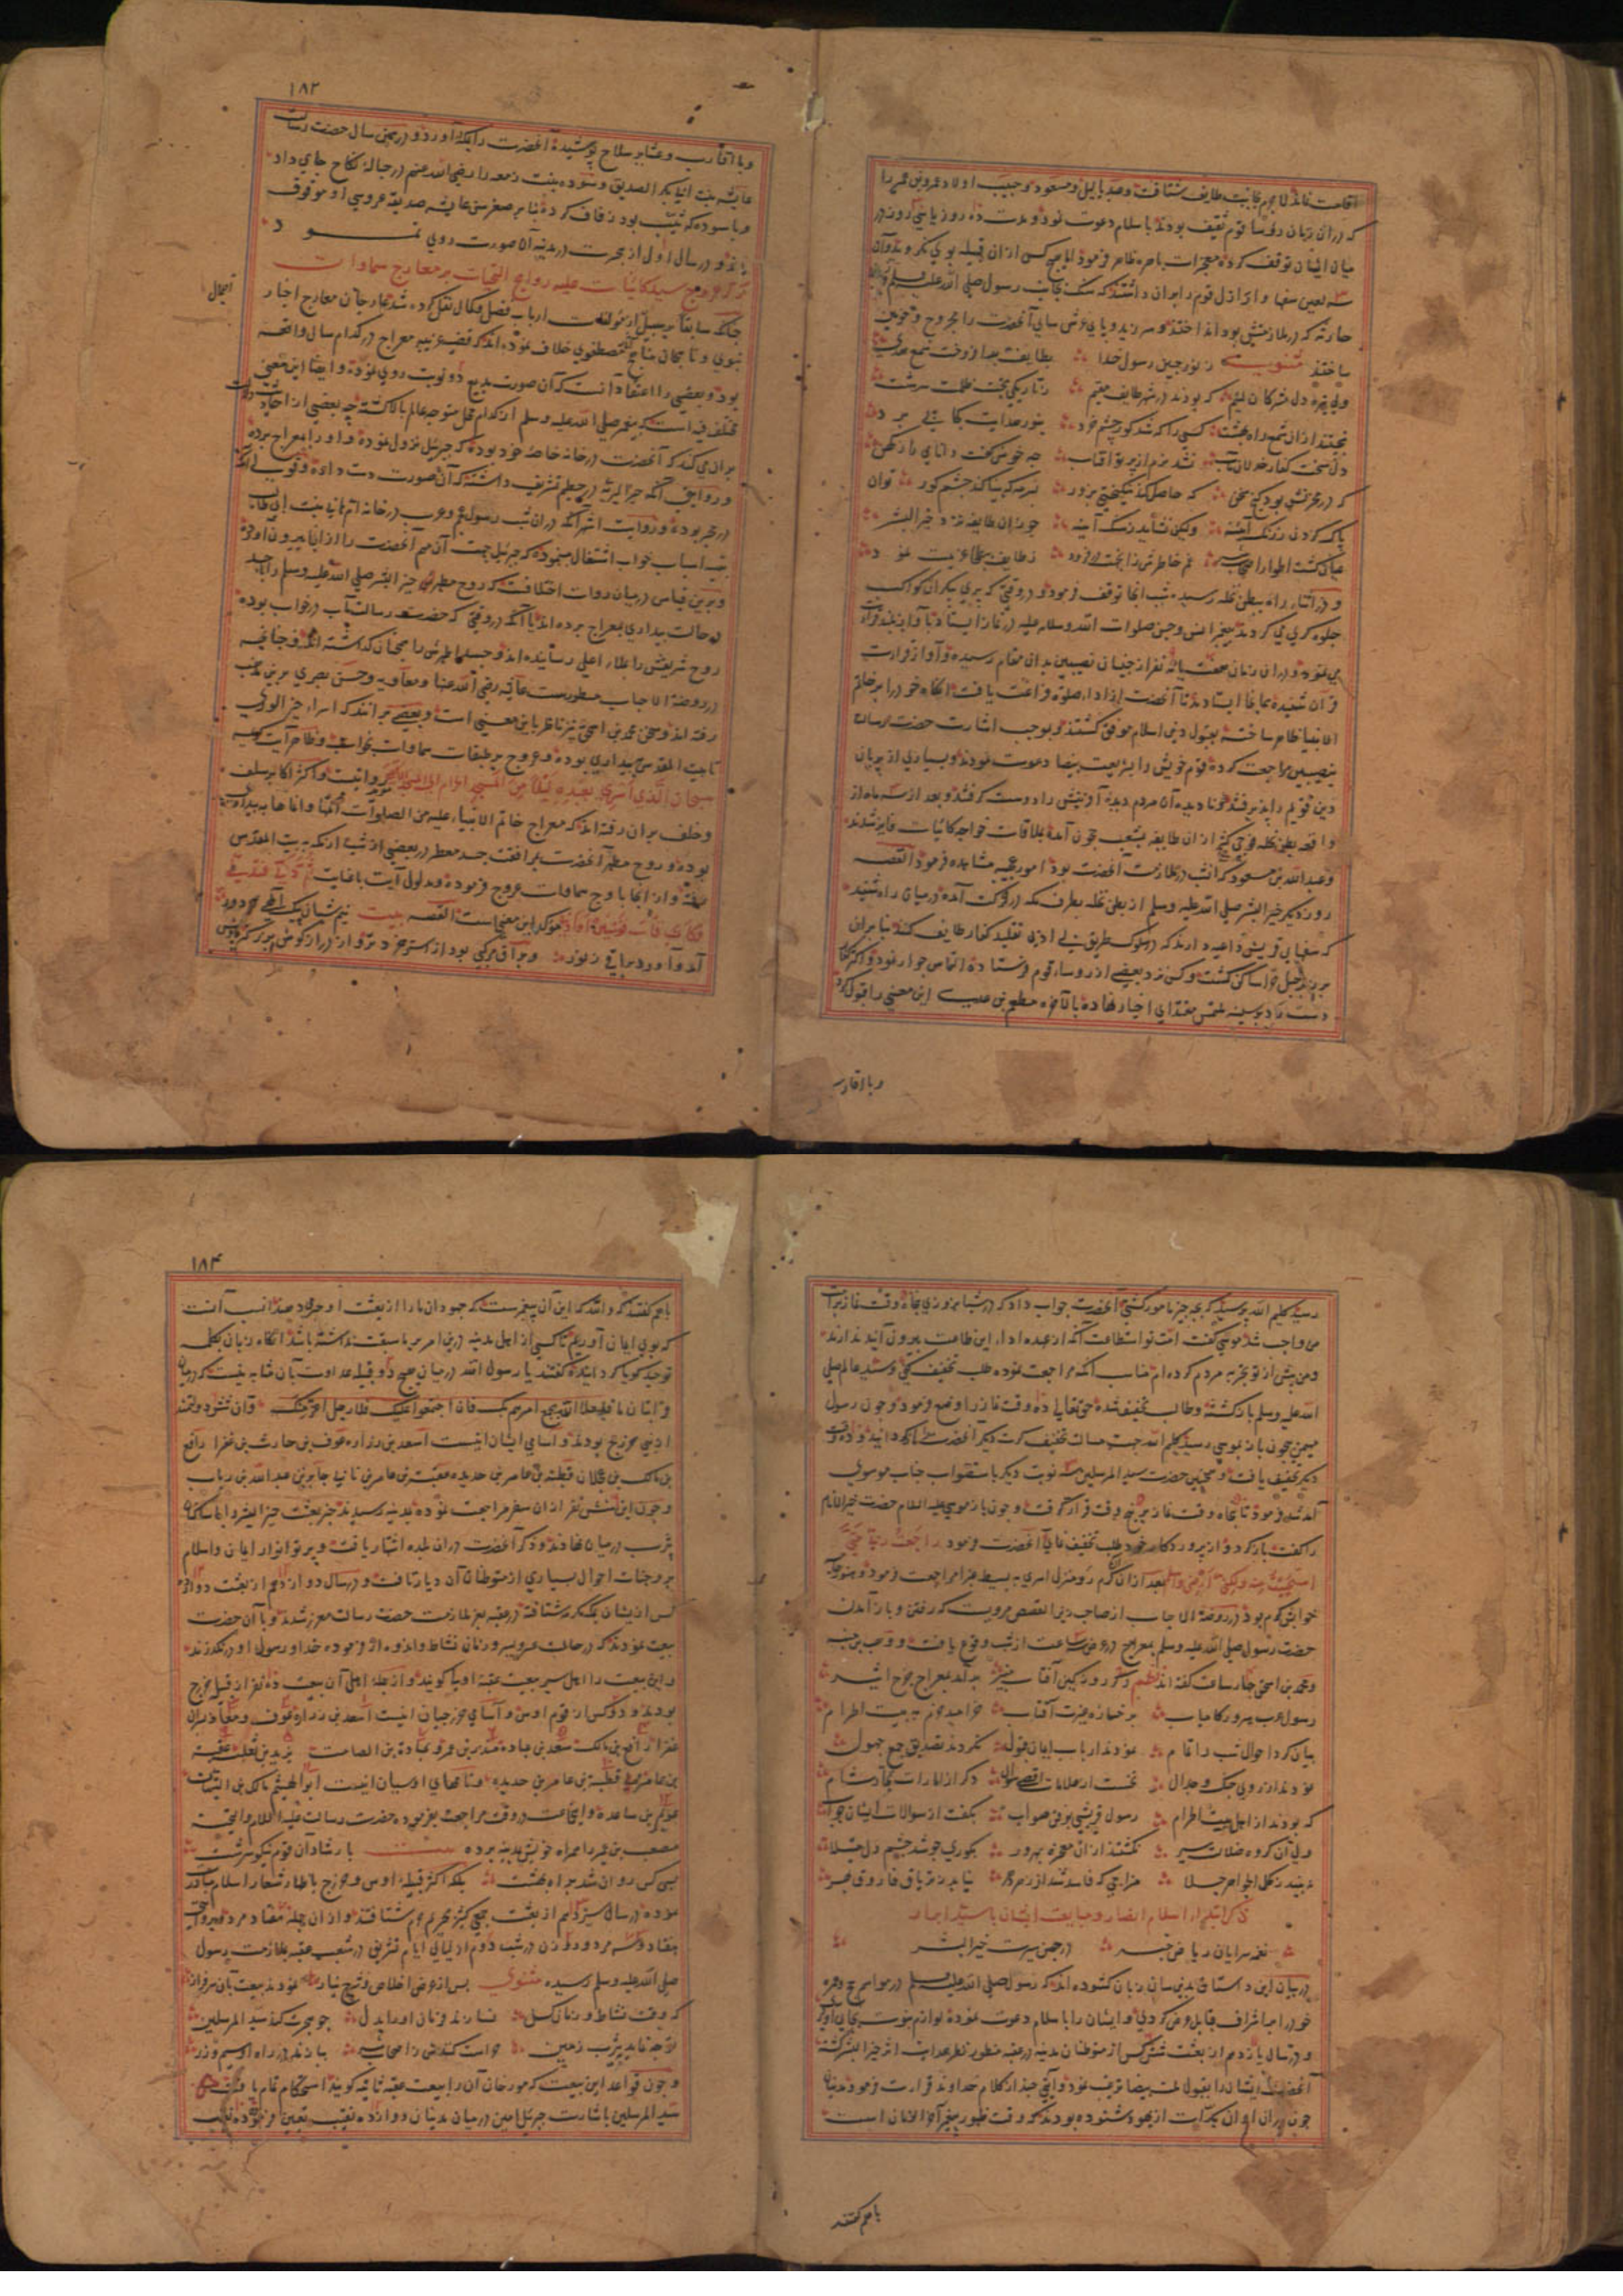 اقامت نماند لاجرم بجانب طایف شتافت و عبد یالیل و مسعود و حبیب اولاد عمرو بن عمیر را
که در ان زمان رؤسا قوم ثقیف بودند باسلام دعوت نمود و مدت ده روز یا بیشتر در
میان ایشان توقف کرده معجزات باهره ظاهر فرمود اما هیچ کس از ان قبیله بوی نکرویدند و ان
سه لعین سفها و اراذل قوم را بران داشتند که سنک بجانب رسول صلی الله علیه وسلم
حارثه که در ملازمتش بود انداختند و سر زید و پای عرش سای آنحضرت را مجروح و خونین
ساختند مثنوی ز نور جبین رسول خدا بطایف بعد از وقت شمع هدی
ولی تیره دل مشرکان لئیم که بودند در شهر طایف مقیم ز تاریکی بخت ظلمت سرشت
نجستند از ان شمع راه بهشت کسی را که شد کور چشم خرد بنور هدایت کجا پی برد
دل سخت کفار خذلان مآب نشد نرم از پرتو آفتاب چه خوش گفت دانای راز کهن
که در بحر بخشی بود کنج سخن که حاصل کند نیکبختی بزور بسرمه که بینا کند چشم کور توان
پاک کردن ز زنک آینه ولیکن نشاید ز سنک آینه چو از ان طایفه نزد خیر البشر
عیان کشت اطوار اصحاب شر غم خاطرش زانجهت رو فزود ز طایف ببطحا عزیمت نمود
و در اثناء راه ببطن نخله رسیده شب انجا توقف فرمود و در وقتی که پری پیکران کواکب
جلوه کری می کردند پیغمبر انس و جن صلوات الله وسلامه علیه در نماز ایستاد و باواز بلند قرآن
می نمود و در ان زمان هفت یا نه نفر از جنیان نصیبین بدان مقام رسیده و آواز قراءت
قرآن شنیده همانجا ایستادند تا آنحضرت از اداء صلوة فراغت یافت انکاه خود را بر خاتم
الانبیا ظاهر ساخته بقبول دین اسلام موفق کشتند و بموجب اشارت حضرت رسالت
بنصیبین مراجعت کرده قوم خویش را بشریعت بیضا دعوت نمودند و بسیاری از پریان
دین قویم را پذیرفتند و نادیده آن مردم دیده آفرینش را دوست کرفتند و بعد از سه ماه از
واقعه بطن نخله فوجی کثیر از ان طایفه بشعب حجون آمده بملاقات خواجه کائنات فایز شدند
وعبدالله بن مسعود که انشب در ملازمت آنحضرت بود امور عجیبه مشاهده فرمود القصه
روز دیکر خیر البشر صلی الله علیه وسلم از بطن نخله بطرف مکه در حرکت آمده در میان راه شنید
که سفهای قریش داعیه دارند که در سلوک طریق بی ادبی تقلید کفار طایف کنند بنا بران
بر بزبر جبل حرا ساکن کشت و کس نزد بعضی از روساء قوم فرستاده التماس جوار نمود و اکثر کفار
دست رد بر سینه ملتمس مقتدای اخیار نهاده بالآخره مطعم بن عدی این معنی را قبول کرد
وبا اقارب
۱۸۳
وبا اقارب و عشایر سلاح پوشیده آنحضرت را بمکه آورد و در همین سال حضرت رسالت
عایشه بنت ابابکر الصدیق و سوده بنت زمعه را رضی الله عنهم در حباله نکاح جای داد
وبا سوده که ثیب بود زفاف کرده بنا بر صغر سن عایشه صدیقه عروسی او موقوف
ماند و در سال اول از هجرت در مدینه آن صورت روی نمود
ذکر عروج سید کائنات علیه روایح التحیات بر معارج سماوات
اجمال
چنانکه سابقا بر سبیل از مولفات ارباب فضل و کمال نقل کرده شد عارجان معارج اخبار
نبوی و ناهجان مناهج مصطفوی خلاف نموده اند که قضیه غریبه معراج در کدام سال واقع
بود و بعضی را اعتقاد آنست که آن صورت بدیع دو نوبت روی نموده و ایضا این معنی
مختلف فیه است که پیغمبر صلی الله علیه وسلم از کدام محل متوجه عالم بالا کشته چه بعضی از احادیث دلالت
بران می کند که آنحضرت در خانه خاصه خود بوده که جبرئیل نزول نموده و او را بمعراج برده
و روایتی آنکه خیر البریه در حطیم تشریف داشته که آن صورت دست داده و قولی آنکه
در حجر بوده و روایت اشهر آنکه در ان شب رسول عجم و عرب در خانه ام هانی بنت ابی طالب
بتهیه اسباب خواب اشتغال مینموده که جبرئیل جهت آن مهم آنحضرت را از انجا بیرون آورد
و برین قیاس در میان روات اختلافست که روح مطهر خیر البشر صلی الله علیه وسلم را با جسد
در حالت بیداری بمعراج برده اند یا آنکه در وقتی که حضرت رسالت مآب در خواب بوده
روح شریفش را بملاء اعلی رسانیده اند و جسد اطهرش را همچنان کذاشته اند و چنانچه
در روضة الاحباب مسطورست عایشه رضی الله عنها و معاویه و حسن بصری برین مذهب
رفته اند و سخن محمد بن اسحق نیز ناظر باین معنیست و بعضی بر انند که اسراء خیر الوری
تا بیت المقدس بیداری بوده و عروج بر طبقات سماوات بخواب و ظاهر آیت کریمه
سبحان الذی أسرى بعبده لیلا من المسجد الحرام الى المسجد الاقصی موید روایتیست و اکثر اکابر سلف
وخلف بران رفته اند که معراج خاتم الانبیاء علیه من الصلوات اتمها وانماها به بیداری
بوده و روح مطهر آنحضرت بمرافقت جسد معطر در بعضی از شب از مکه به بیت المقدس
رفته و از انجا باوج سماوات عروج فرموده و مدلول آیت باغایت ثم دنی فتدلی
فکان قاب قوسین او ادنی موکد این معنیست القصه بیت نیم شبان پیک الهی ز دور
آمد و آورد براقی ز نور و براق مرکبی بود از استر خردتر و از دراز کوش بزرکتر
رسید کلیم الله پرسید که بچه چیز مامور کشتی آنحضرت جواب داد که در شبانروزی پنجاه وقت نماز بر امت
من واجب شد موسی گفت امت تو استطاعت آنکه از عهده اداء این طاعت بیرون آیند ندارند
و من پیش از تو تجربه مردم کرده ام مناسب آنکه مراجعت نموده طلب تخفیف کنی و سید عالم صلی
الله علیه وسلم بازکشته و طالب تخفیف شده حق تعالی ده وقت نماز را وضع فرمود و چون رسول
مهیمن بیچون باز بموسی رسید کلیم الله جهت مسالت تخفیف کرت دیکر آنحضرت را باز کردانید و ده وقت
دیکر تخفیف یافت و همچنین حضرت سید المرسلین سه نوبت دیکر باستصواب جناب موسوی
آمد شد فرمود تا پنجاه وقت نماز بر پنج وقت قرار کرفت و چون باز موسی علیه السلام حضرت خیر الانام
را گفت بازکرد و از پروردکار خود طلب تخفیف نمای آنحضرت فرمود راجعت ربی حتی
استحییت منه ولکن ارضی واسلم بعد از ان اکرم رو منزل اسری به بسیط غبرا مراجعت فرمود و هنوز جای
خوابش کرم بود در روضة الاحباب از صاحب زین القصص مرویست که رفتن و باز آمدن
حضرت رسول صلی الله علیه وسلم بمعراج در عرض سه ساعت از شب وقوع یافت و وهب بن منبه
و محمد بن اسحق چار ساعت کفته اند نظم دکر روز کین آفتاب منیر بر آمد بمعراج چرخ اثیر
رسول عرب سرور کامیاب بر خساره غیرت آفتاب خرامید محرم به بیت الحرام
بیان کرد احوال شب را تمام نمودند ارباب ایمان قبول نکردند تصدیق جمع جهول
نمودند از روی جنک و جدال نخست از علامات اقصی سوال دکر از امارات تجار شام
که بودند از اهل بیت الحرام رسول قریشی بوفق صواب بگفت از سوالات ایشان جواب
ولی آن کروه ضلالت سیر نکشتند از ان معجزه بهره ور بکوری چو شد چشم دل مبتلا
نبیند ز کحل الجواهر جلا مزاجی که فاسد شد از زهر نیابد ز تریاق فاروق بهر
ذکر ابتداء اسلام انصار و مبایعت ایشان با سید ابرار
نغمه سرایان ریاض خبر در چمن سیرت خیر البشر
در بیان این داستان بدین سان زبان کشوده اند که رسول صلی الله علیه وسلم در مواسم حج و عمره
خود را بر اشراف قبایل عرض کردی و ایشان را باسلام دعوت نموده لوازم نبوت بجای آوردی
و در سال یازدهم از بعثت شش کس از متوطنان مدینه در عقبه منظور نظر هدایت اثر خیر البشر کشته
آنحضرت ایشان را بقبول ملت بیضا ترغیب نمود و آیتی چند از کلام خداوند قراءت فرمود مدنیان
چون در ان اوان بکرات از یهود شنوده بودند که وقت ظهور پیغمبر آخر الزمان است
باهم گفتند
۱۸۴
باهم گفتند که والله که این آن پیغمبرست که جهودان ما را از بعثت او خبر داده‌اند انسب آنست
که بوی ایمان آوریم تا کسی از اهل مدینه درین امر بر ما سبقت نداشته باشد انکاه زبان بکلمه
توحید کویا کردانیده گفتند یا رسول الله در میان هیچ دو قبیله عداوت بآن مثابه نیست که در میان
از بنی خزرج بودند و اسامی ایشان اینست اسعد بن زراره عوف بن حارث بن عفرا رافع
بن مالک بن عجلان قطبة بن عامر بن حدیده عقبة بن عامر بن نابی جابر بن عبدالله بن رباب
و چون این شش نفر از ان سفر مراجعت نموده بمدینه رسیدند خبر بعثت خیر البشر را با ساکنان
یثرب در میان نهادند و ذکر آنحضرت در ان بلده اشتهار یافت و پرتو انوار ایمان و اسلام
بر وجنات احوال بسیاری از متوطنان آن دیار تافت و در سال دوازدهم از بعثت دوازده
کس از یشان بمکه شتافته در عقبه بعز ملازمت حضرت رسالت معزز شدند و با آن حضرت
بیعت نمودند که در حالت عسر و یسر و زمان نشاط و اندوه از فرموده خدا و رسول او در نکذرند
و این بیعت را اهل سیر بیعت عقبه اولی کویند و از جمله اهل آن بیعت ده نفر از قبیله خزرج
بودند و دو کس از قوم اوس و اسامی خزرجیان اینست اسعد بن زراره عوف و معاذ پسران
عفرا رافع بن مالک سعد بن عباده منذر بن عمرو عبادة بن الصامت یزید بن ثعلبه عقبة
بن عامر قطبة بن عامر بن حدیده و نامهای اوسیان اینست ابو الهیثم مالک بن التیهان
عویم بن ساعده و این جماعت در وقت مراجعت بفرموده حضرت رسالت علیه السلام والتحیة
مصعب بن عمیر را همراه خویش بمدینه برده بیت بارشاد آن قوم نیکو سرشت
بسی کس روان شد براه بهشت بلکه اکثر قبیله اوس و خزرج باظهار شعار اسلام مبادرت
نموده در سال سیزدهم از بعثت جمعی کثیر بحرم محترم شتافتند و از ان جمله هفتاد مرد و بروایتی
هفتاد و سه مرد و دو زن در شب دوم از لیالی ایام تشریق در شعب عقبه بملازمت رسول
صلی الله علیه وسلم رسیده مثنوی پس از عرض اخلاص و شرح نیاز نمودند بیعت بآن سرفراز
که وقت نشاط و زمان کسل نسازند فرمان او را بدل چو هجرت کند سید المرسلین
توجه نماید بیثرب زمین حراست کنندش ز اصحاب شر ببازند در راه او سیم و زر
و چون قواعد این بیعت که مورخان آن را بیعت عقبه ثانیه کویند استحکام تمام یافت
سید المرسلین باشارت جبرئیل امین در میان مدنیان دوازده نقیب تعیین فرموده